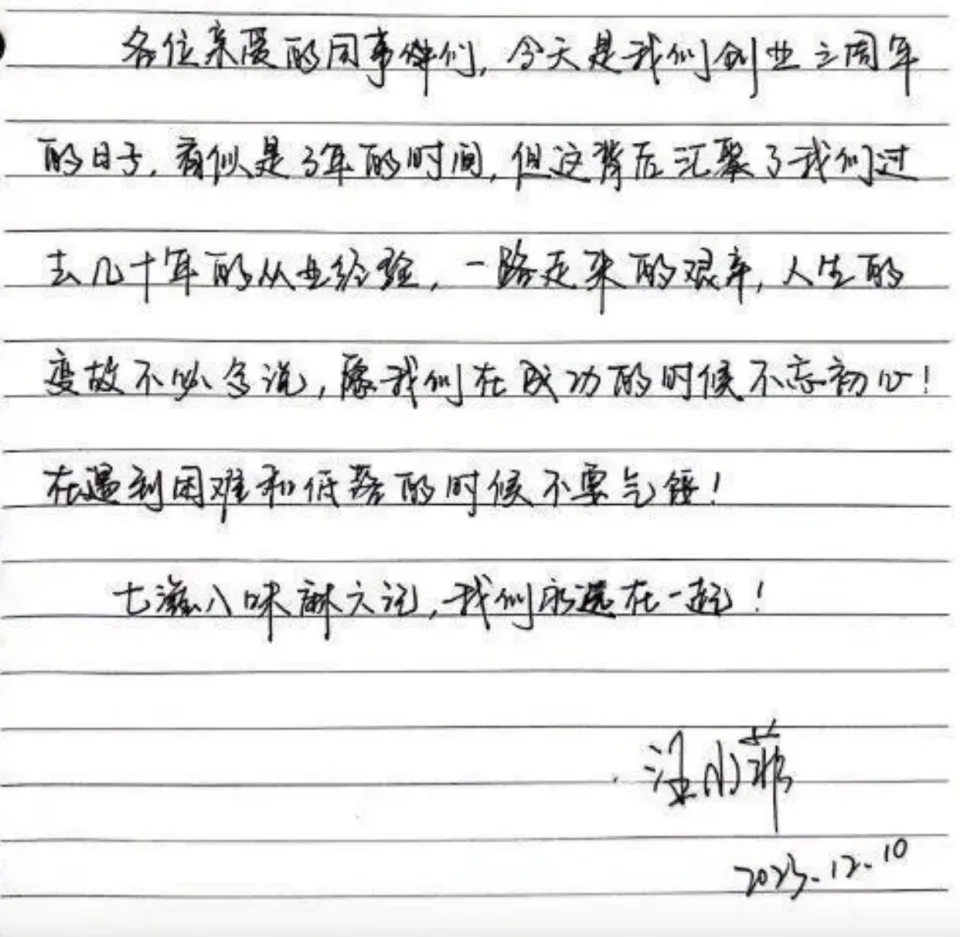 各位亲爱的同事伴们，今天是我们创业三周年
的日子，看似是3年的时间，但这背后汇聚了我们过
去几十年的从业经验，一路走来的艰辛，人生的
变故不必多说，愿我们在成功的时候不忘初心！
在遇到困难和低落的时候不要气馁！
七滋八味麻六记，我们永远在一起！
汪小菲
2023.12.10